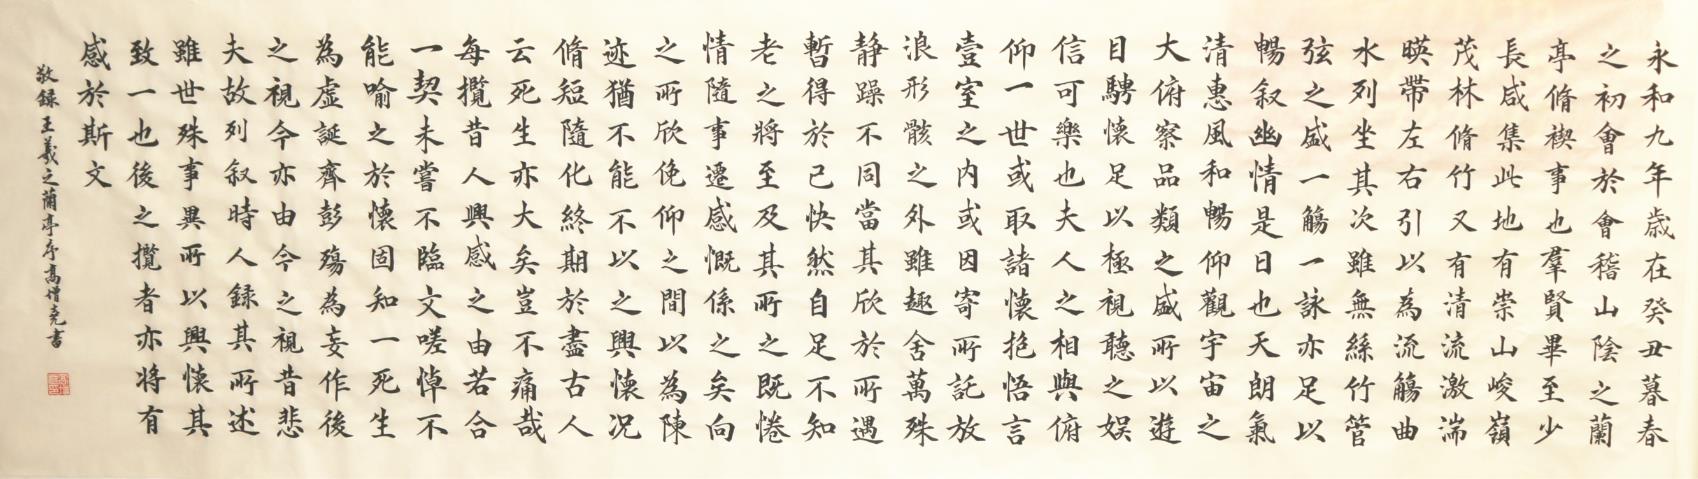 永和九年歳在癸丑暮春
之初會於會稽山陰之蘭
亭脩禊事也羣賢畢至少
長咸集此地有崇山峻嶺
茂林脩竹又有清流激湍
暎帶左右引以為流觴曲
水列坐其次雖無絲竹管
弦之盛一觴一詠亦足以
暢叙幽情是日也天朗氣
清惠風和暢仰觀宇宙之
大俯察品類之盛所以遊
目騁懷足以極視聽之娛
信可樂也夫人之相與俯
仰一世或取諸懷抱悟言
壹室之内或因寄所託放
浪形骸之外雖趣舍萬殊
静躁不同當其欣於所遇
暫得於己快然自足不知
老之將至及其所之既惓
情隨事遷感慨係之矣向
之所欣俛仰之間以為陳
迹猶不能不以之興懷况
脩短隨化終期於盡古人
云死生亦大矣豈不痛哉
每攬昔人興感之由若合
一契未嘗不臨文嗟悼不
能喻之於懷固知一死生
為虛誕齊彭殤為妄作後
之視今亦由今之視昔悲
夫故列叙時人録其所述
雖世殊事異所以興懷其
致一也後之攬者亦将有
感於斯文
敬録王羲之蘭亭序高增尭書